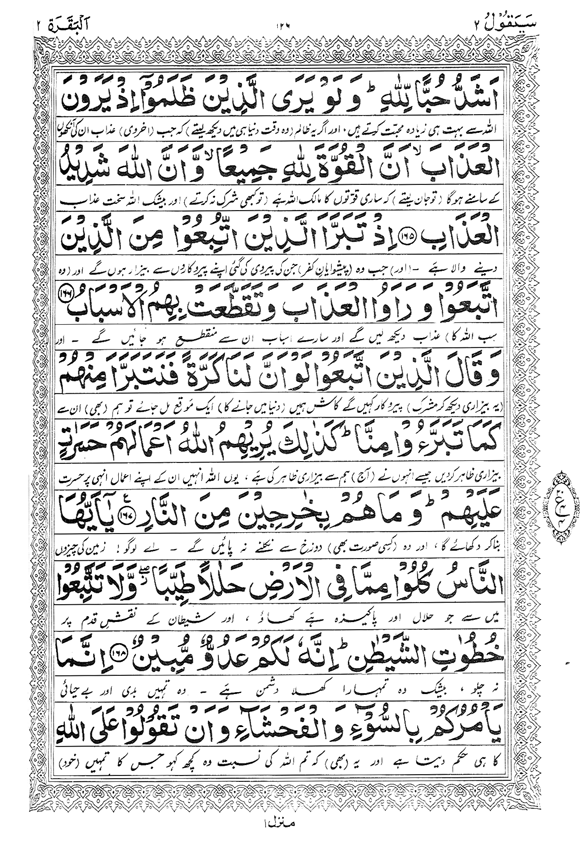 سَيَقُولُ ٢
١٢٦
اَلْبَقَرَة ٢
اَشَدُّ حُبًّا لِّلّٰهِ ؕ وَ لَوْ يَرَى الَّذِيْنَ ظَلَمُوْۤا اِذْ يَرَوْنَ
اللہ سے بہت ہی زیادہ محبّت کرتے ہیں، اور اگر یہ ظالم (وہ وقت دنیا ہی میں دیکھ لیتے) کہ جب (اخروی) عذاب ان کی آنکھوں
الْعَذَابَ ۙ اَنَّ الْقُوَّةَ لِلّٰهِ جَمِيْعًا ۙ وَّ اَنَّ اللّٰهَ شَدِيْدُ
کے سامنے ہوگا (تو جان لیتے) کہ ساری قوتوں کا مالک اللہ ہے (تو کبھی شرک نہ کرتے) اور بیشک اللہ سخت عذاب
الْعَذَابِ ﴿١٦٥﴾ اِذْ تَبَرَّاَ الَّذِيْنَ اتُّبِعُوْا مِنَ الَّذِيْنَ
دینے والا ہے - (اور) جب وہ (پیشوایانِ کفر) جن کی پیروی کی گئی اپنے پیروکاروں سے بیزار ہوں گے اور (وہ
اتَّبَعُوْا وَ رَاَوُا الْعَذَابَ وَ تَقَطَّعَتْ بِهِمُ الْاَسْبَابُ ﴿١٦٦﴾
سب اللہ کا) عذاب دیکھ لیں گے اور سارے اسباب ان سے منقطع ہو جائیں گے - اور
وَ قَالَ الَّذِيْنَ اتَّبَعُوْا لَوْ اَنَّ لَنَا كَرَّةً فَنَتَبَرَّاَ مِنْهُمْ
(یہ بیزاری دیکھ کر مشرک) پیروکار کہیں گے کاش ہمیں (دنیا میں جانے کا) ایک موقع مل جائے تو ہم (بھی) ان سے
كَمَا تَبَرَّءُوْا مِنَّا ؕ كَذٰلِكَ يُرِيْهِمُ اللّٰهُ اَعْمَالَهُمْ حَسَرٰتٍ
بیزاری ظاہر کردیں جیسے انہوں نے (آج) ہم سے بیزاری ظاہر کی ہے، یوں اللہ انہیں ان کے اپنے اعمال انہی پر حسرت
عَلَيْهِمْ ؕ وَ مَا هُمْ بِخٰرِجِيْنَ مِنَ النَّارِ ﴿١٦٧﴾ يٰۤاَيُّهَا
بنا کر دکھائے گا، اور وہ (کسی صورت بھی) دوزخ سے نکلنے نہ پائیں گے - اے لوگو! زمین کی چیزوں
النَّاسُ كُلُوْا مِمَّا فِي الْاَرْضِ حَلٰلًا طَيِّبًا ۖ وَّ لَا تَتَّبِعُوْا
میں سے جو حلال اور پاکیزہ ہے کھاؤ، اور شیطان کے نقشِ قدم پر
خُطُوٰتِ الشَّيْطٰنِ ؕ اِنَّهٗ لَكُمْ عَدُوٌّ مُّبِيْنٌ ﴿١٦٨﴾ اِنَّمَا
نہ چلو، بیشک وہ تمہارا کھلا دشمن ہے - وہ تمہیں بدی اور بے حیائی
يَاْمُرُكُمْ بِالسُّوْٓءِ وَ الْفَحْشَآءِ وَ اَنْ تَقُوْلُوْا عَلَى اللّٰهِ
کا ہی حکم دیتا ہے اور یہ (بھی) کہ تم اللہ کی نسبت وہ کچھ کہو جس کا تمہیں (خود)
منزل ۱